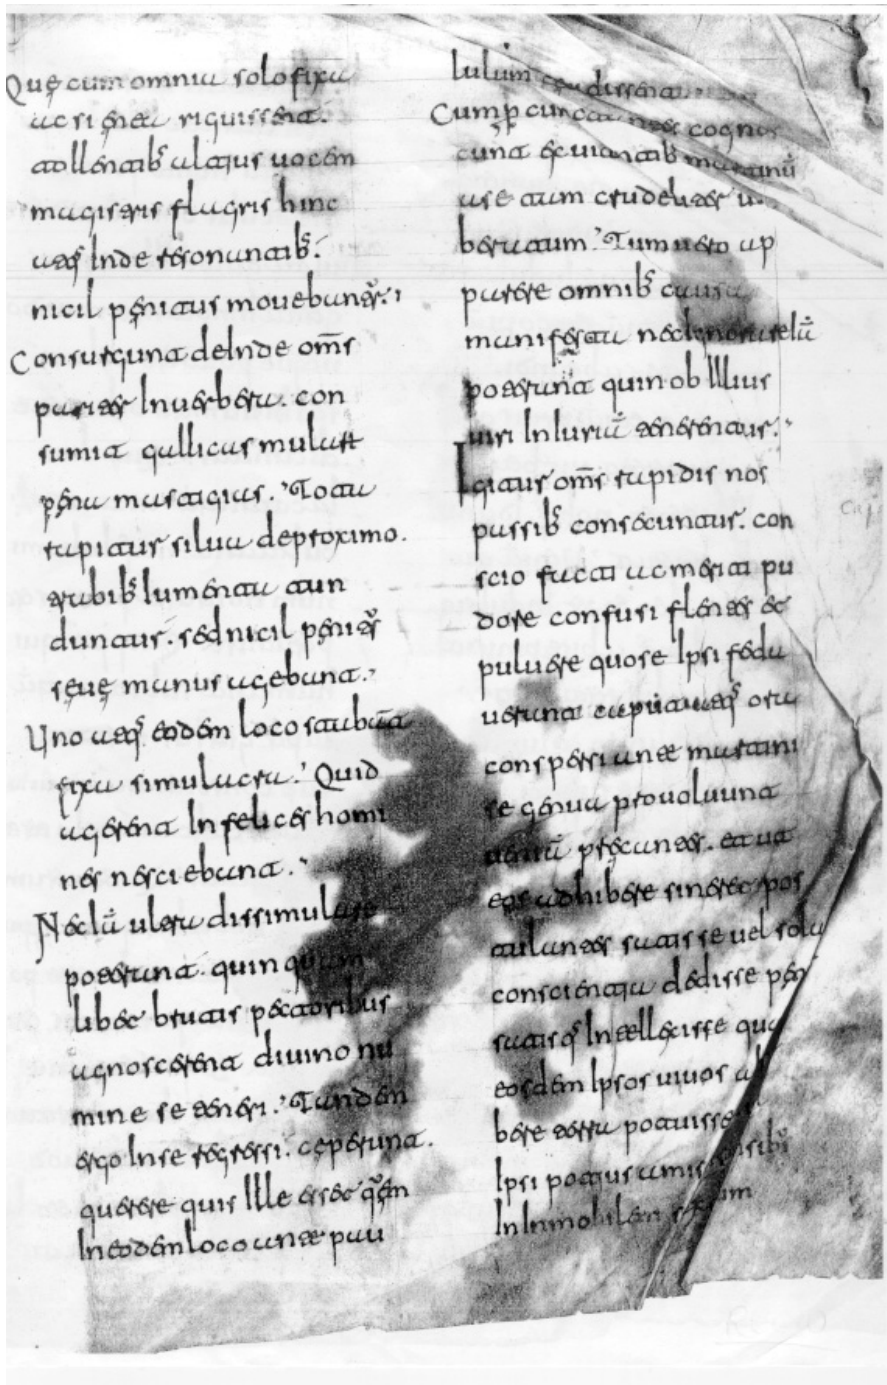 Quę cum omnia solo fixa
ac si ęnea riguissent.
attollentib; alatius uocem
magistris flagris hinc
atq; Inde resonantib;.
nicil pęnitus mouebant̉.
Consurgunt deInde om̅s
pariter Inuerbera con
sumit gallicas mulas
pęna mastigias. Tota
rapitur silua deproximo.
trabib; Iumenta tun
duntur. sed nicil pęnit̉
sęuę manus agebant.
Uno atq; eodem loco stabant
fixa simulacra. Quid
agerent Infelices homi
nes nesciebant.
Nec Ia̅ ultra dissimulare
poterunt. quin quam
libet brutis pectoribus
agnoscerent diuino nu
mine se teneri. Tandem
ergo Inse regressi. ceperunt.
querere quis Ille esset q̅m
Ineodem loco ante pau
lulum
Cum p̱ cognos
cunt et uiantib; martinu̅
ase tam crudeliter
beratum. Tum uero ap
parere omnib; causa
manifesta nec Ignorare Ia̅
poterunt quin ob Illius
uiri Iniuria̅ tenerentur.
Igitur om̅s rapidis nos
passib; consecuntur. con
scio facti ac meriti pu
dore confusi flentes et
puluere quose Ipsi feda
uerunt caput atq; ora
conspersi ante martini
se genua prouoluunt
uenia̅ precantes. et ut
eos adhibere sineret pos
tulantes satis se uel sola
conscientia dedisse pęn
satisq; Intellecisse qua
eosdem Ipsos uiuos
bere terra potuisse
Ipsi potius
InInmobilem